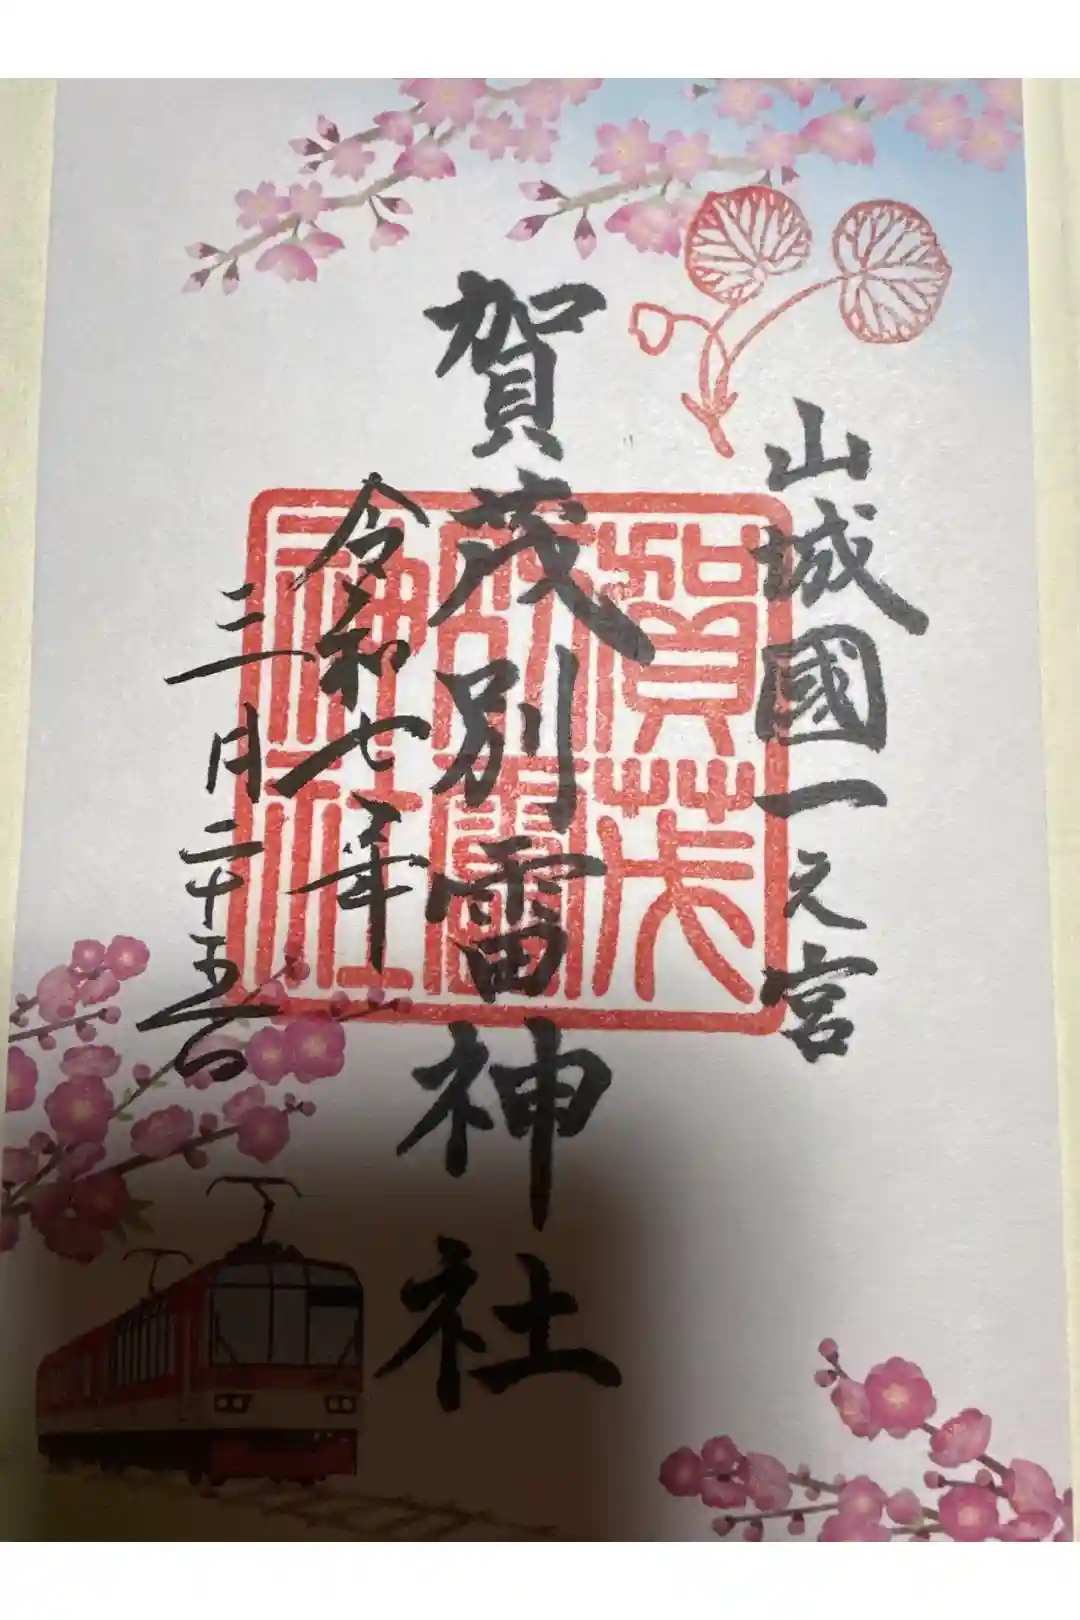 山城國一之宮
賀茂別雷神社
賀茂
別雷
神社
令和七年
三月二十五日